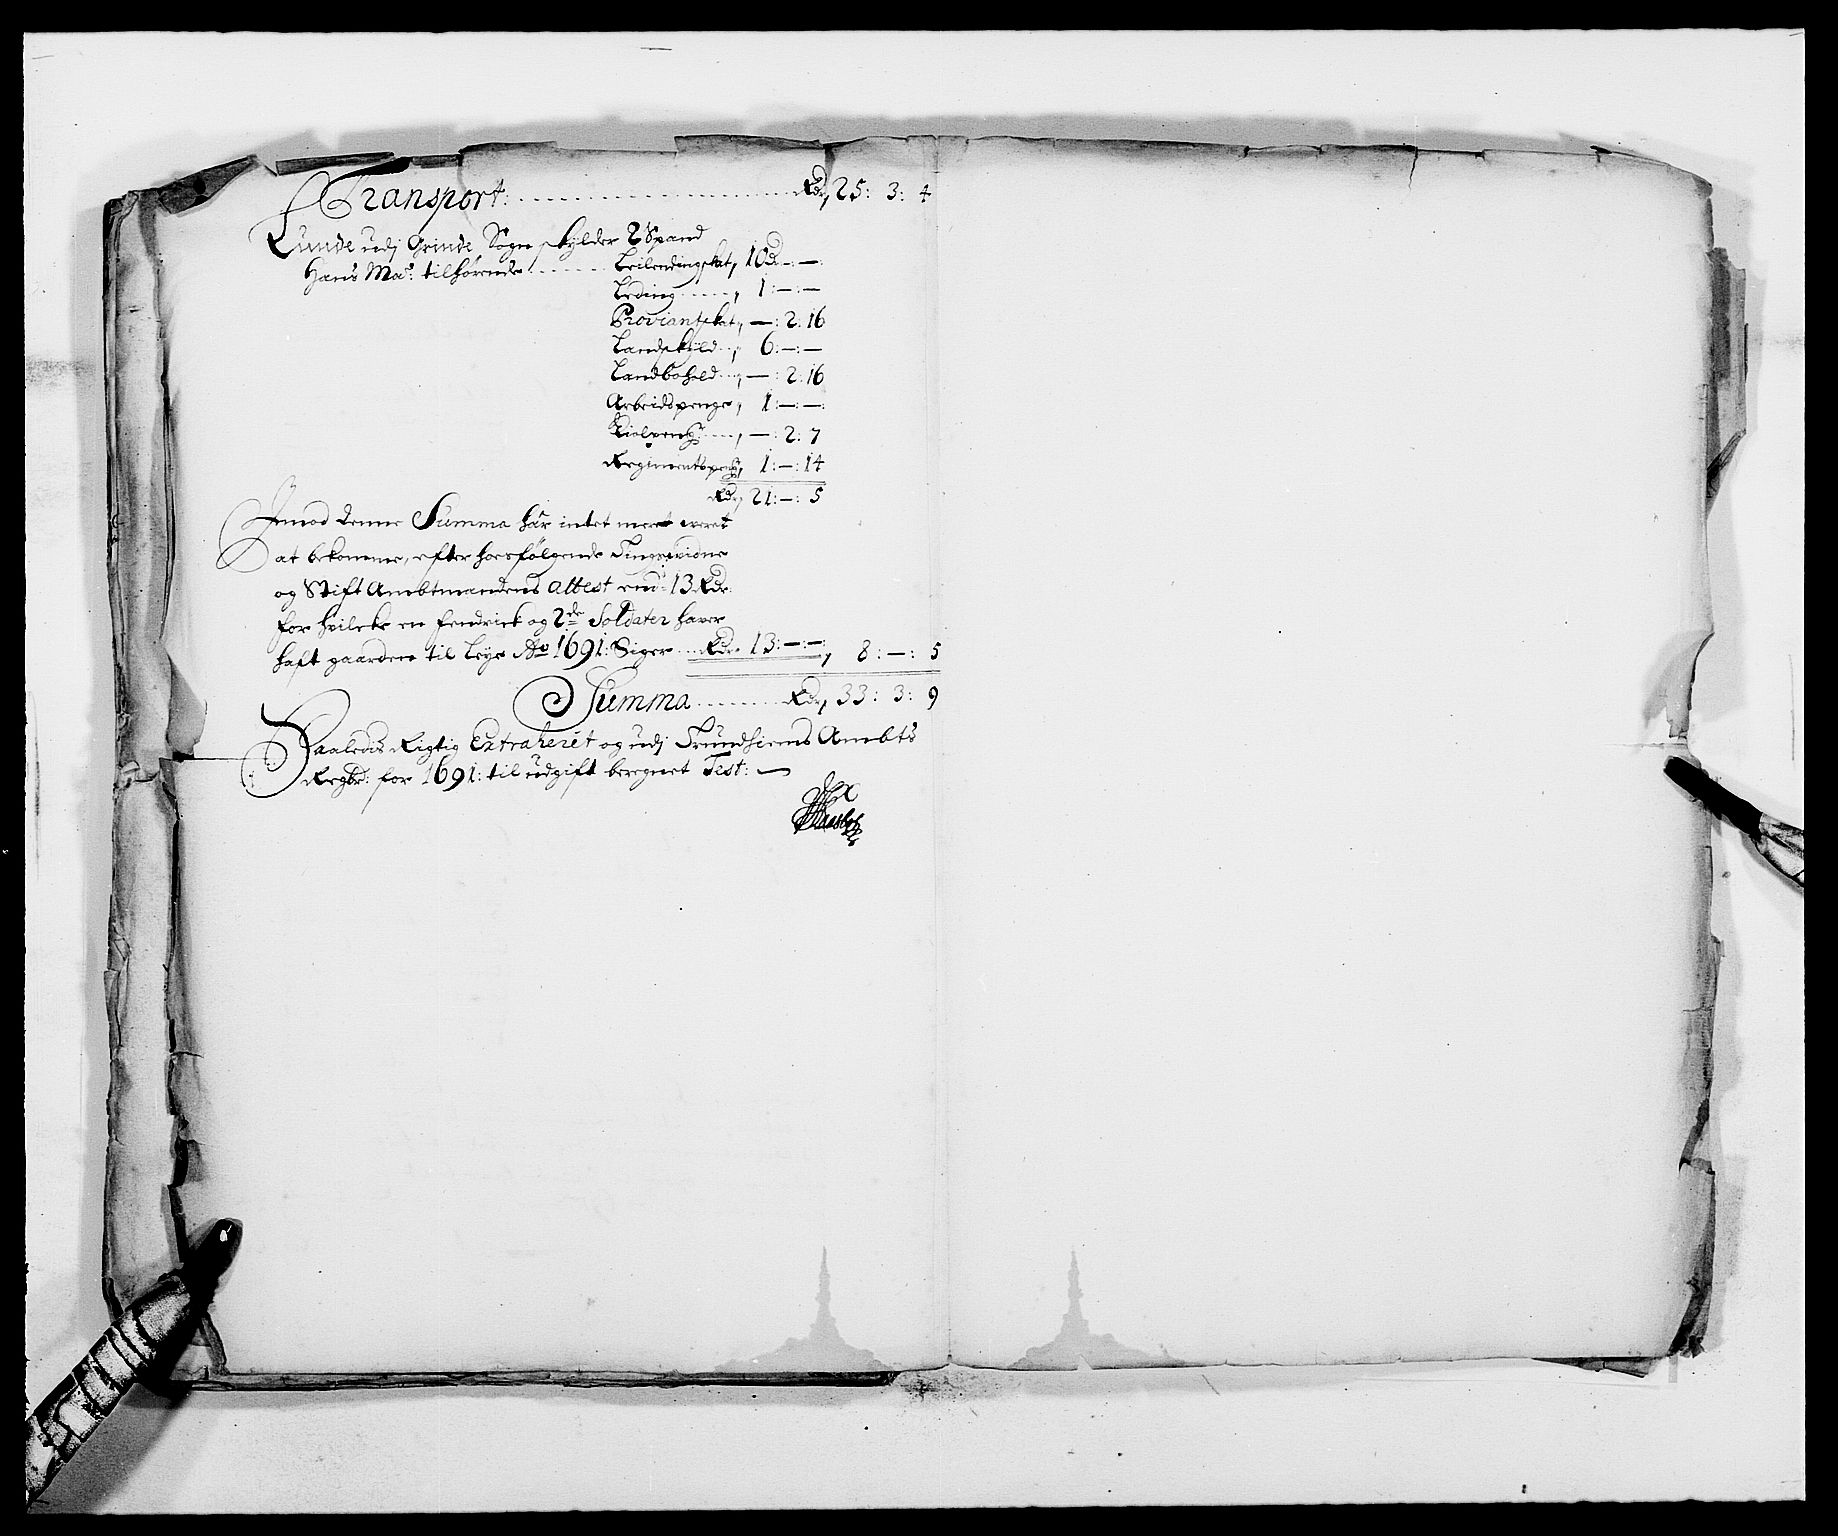 Transport: Rdr, 25: 3: 4
Lunde udj Grinde Sogn skylder 2 Spand
Hans Ma: tilhørende Leilendingskat, 10 Rd: —: —:
Leding, 1: —: —
Proviantskat, —: 2: 16
Landskyld, 6: —: —
Landbohold, —: 2: 16
Arbeidspenge, 1: —: —:
—: 2: 7
Regimentspeng, 1: —: 14
Rdr, 21: —: 5
Imod denne Summa har intet meret weret
at bekomme, efter hoesfølgende Tingsvidne
og Stift Ambtmandens attest end: 13 Rdr:
for hvilcke en fendrick og 2de Soldater hafver
haft gaarden til leye Ao 1691: Siger Rdr 13: —: —: , 8: —: 5
Summa Rdr, 33: 3: 9
Saaledis Rigtig Extraherét og udj Trundhiems Ambts
Regsk: for 1691: til udgift beregnet Test: —